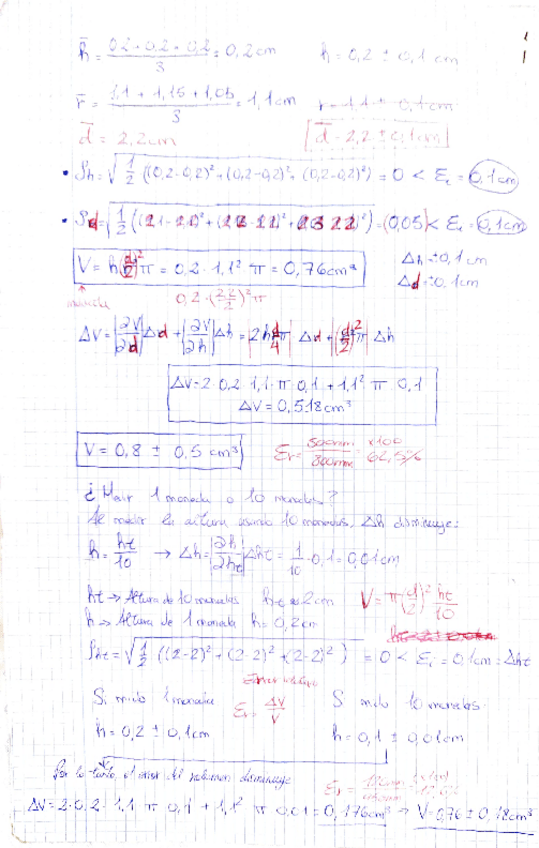 h̄ = (0,2 + 0,2 + 0,2)/3 = 0,2 cm    h = 0,2 ± 0,1 cm
r̄ = (1,1 + 1,15 + 1,05)/3 = 1,1 cm    r = 1,1 ± 0,1 cm
d̄ = 2,2 cm    [d̄ = 2,2 ± 0,1 cm]
• Sh = √(1/2 ((0,2-0,2)² + (0,2-0,2)² + (0,2-0,2)²)) = 0 < Ei = 0,1 cm
• Sd = √(1/2 = (0,05) < Ei = 0,1 cm
V = h(d/2)² π = 0,2 · 1,1² π = 0,76 cm³    Δh = ±0,1 cm
moneda    0,2 · (2,2/2)² π    Δd = ±0,1 cm
ΔV = |∂V/∂d| Δd + |∂V/∂h| Δh = |2h d/4 π| Δd + |(d/2)² π| Δh
ΔV = 2 · 0,2 · 1,1 · π · 0,1 + 1,1² π · 0,1
ΔV = 0,518 cm³
V = 0,8 ± 0,5 cm³    Er = 500 mm/800 mm x100 = 62,5%
¿ 1 moneda o 10 monedas?
Al medir la altura usando 10 monedas, Δh disminuye:
h = ht/10 → Δh = |∂h/∂ht| Δht = 1/10 · 0,1 = 0,01 cm
ht → Altura de 10 monedas    ht = 2 cm    V = π(d/2)² ht/10
h → Altura de 1 moneda    h = 0,2 cm
Sht = √(1/2 ((2-2)² + (2-2)² + (2-2)²)) = 0 < Ei = 0,1 cm = Δht
Error relativo
Si mido 1 moneda    Er = ΔV/V    Si mido 10 monedas
h = 0,2 ± 0,1 cm    h = 0,1 ± 0,01 cm
Por lo tanto, el error del volumen disminuye    Er =
ΔV = 2 · 0,2 · 1,1 π 0,1 + 1,1² π 0,01 = 0,176 cm³ → V = 0,76 ± 0,18 cm³